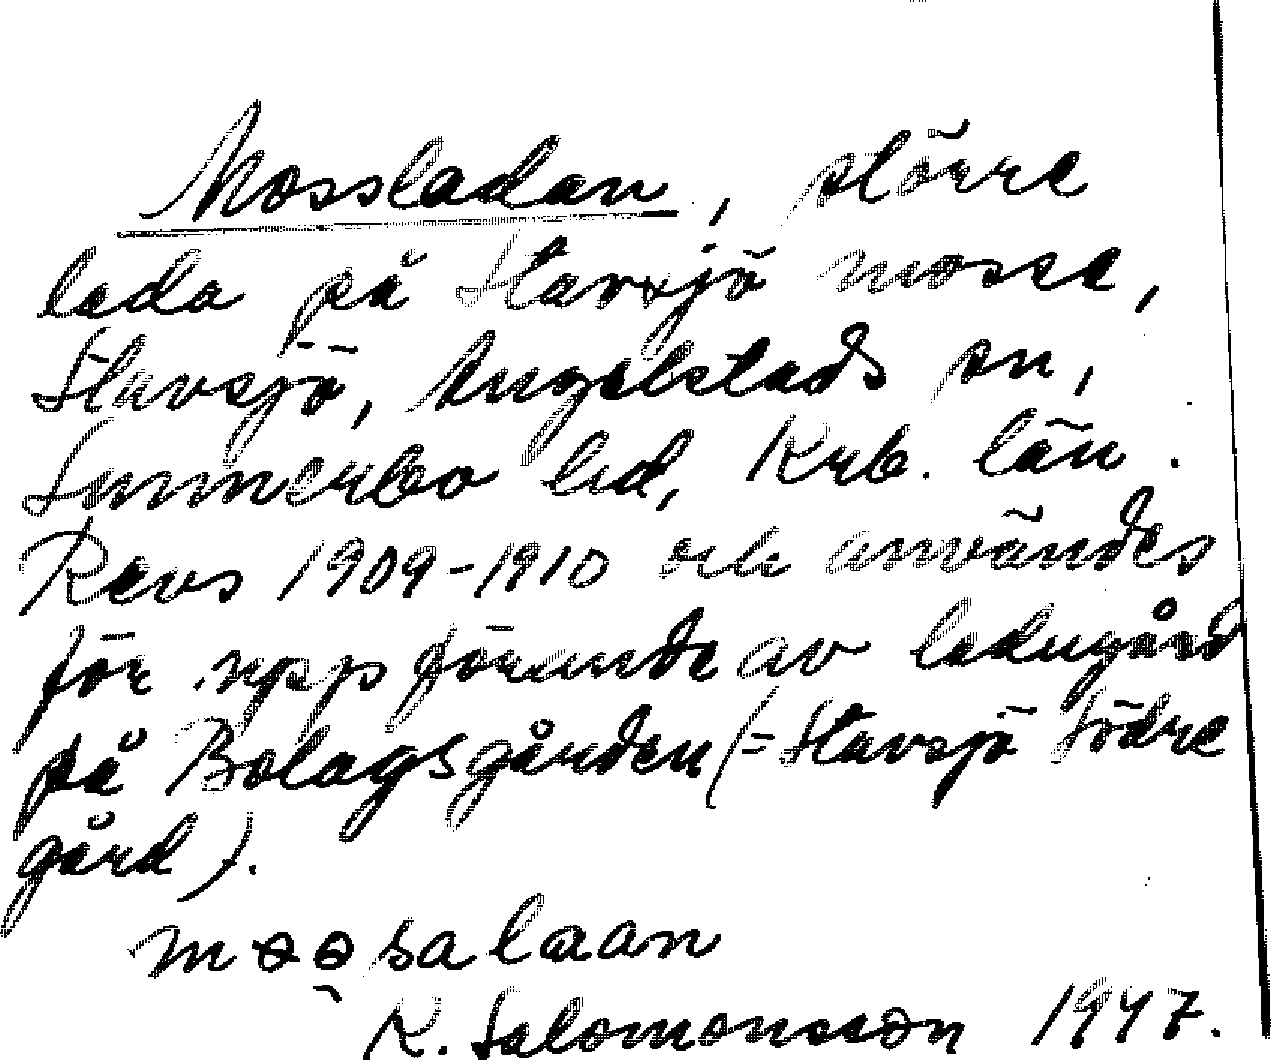 Mossladan, större
lada på Stavsjö mosse,
Stavsjö, Angelstads sn,
Sunnerbo hd, Krb. län.
Revs 1909-1910 och användes
för uppförande av ladugård
på Bolagsgården (= Stavsjö Södre
gård).
K. Salomonsson 1947.